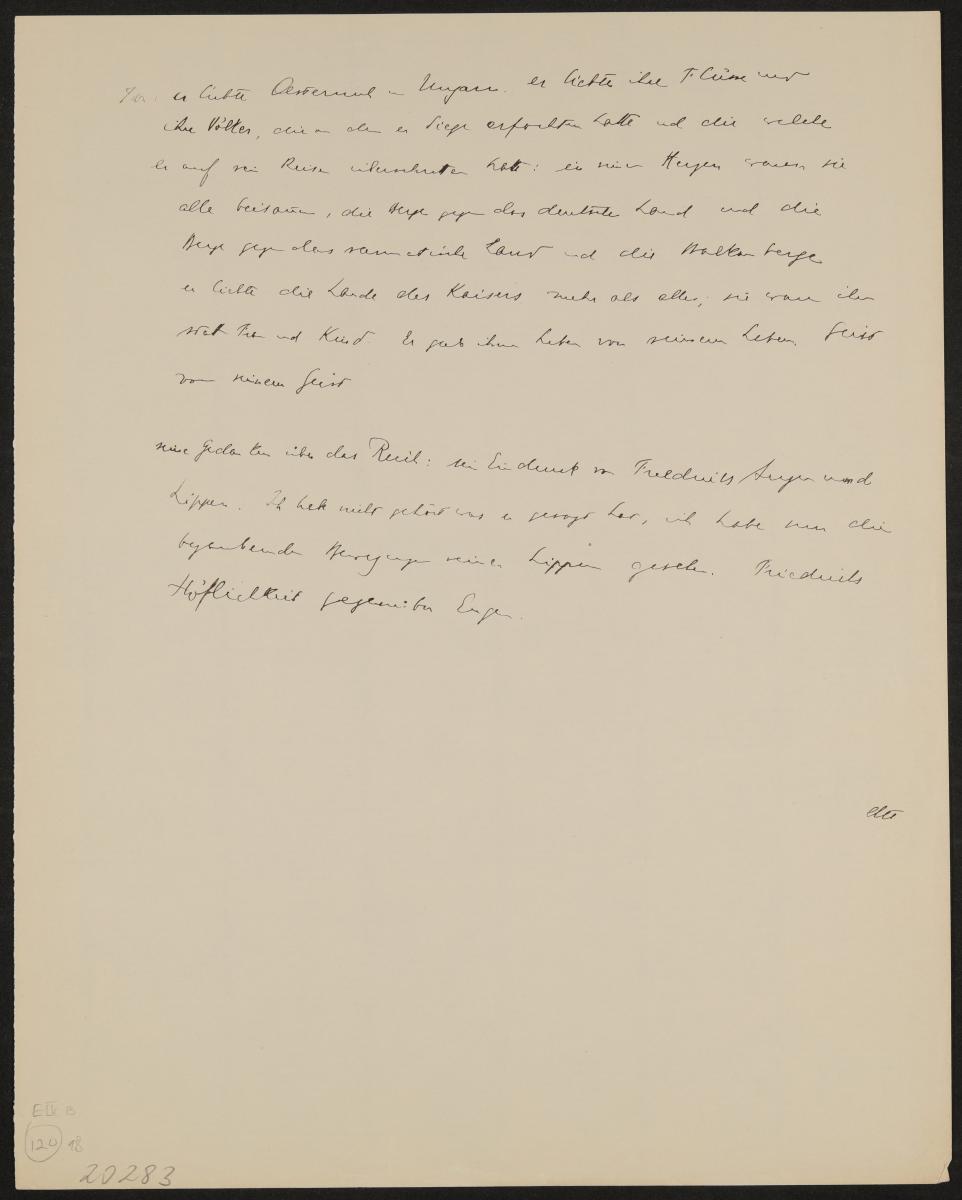 er liebte Oesterreich u Ungarn. er liebte ihre Flüsse und
ihre Völker, die an den er Siege erfochten hatte und die welche
er auf sein Reisen überschritten hatte: in sein Herzen waren sie
alle beisamen, die Berge gegen das deutsche Land und die
Berge gegen das sarmatische Land und die Balkanberge
er liebte die Lande des Kaisers mehr als alles; sie waren ihm
statt Frau und Kind. Er gab ihnen Leben von seinem Leben, Geist
von seinem Geist
seine Gedanken über das Reich: sein Eindruck von Friedrichs Augen und
Lippen. Ich habe nicht gehört was er gesagt hat, ich habe nur die
Bewegungen seiner Lippen gesehen. Friedrichs
Höflichkeit gegenüber Eugen.
E IV B
120 18
20283